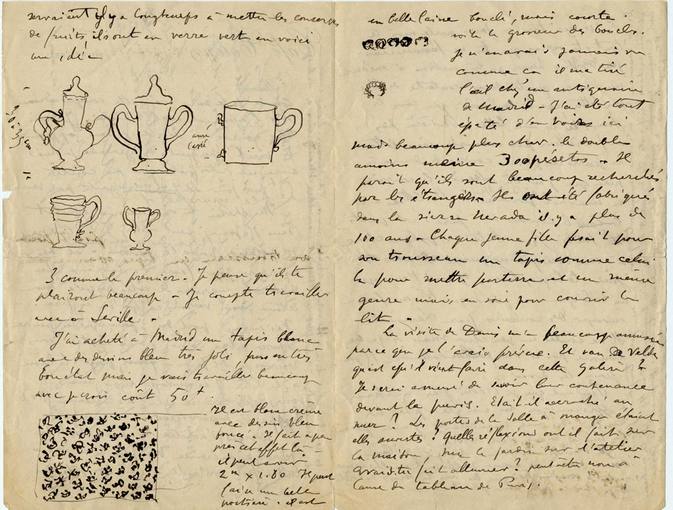 servaient il y a longtemps à mettre les conserves
de fruits ils sont en verre vert en voici
une idée
3 comme le premier. Je pense qu'ils te
plairont beaucoup. Je compte travailler
avec à Séville.
J'ai acheté à Madrid un tapis blanc
avec des dessins bleu très joli, pas en très
bon état mais je vais travailler beaucoup
avec je crois coût 50
Il est blanc crème
avec dessin bleu
foncé. Il fait à peu
près cet effet là
il peut avoir
2m x 1.80 Il peut
faire une belle
portière. il est
en belle laine bouclé, mais courte.
voilà la grosseur des boucles.
Je n'en avais jamais vu
comme ça il m'a tiré
l'œil chez un antiquaire
de Madrid. J'ai été tout
épaté d'en voir ici
mais beaucoup plus cher. le double
au moins même 300 pesetas. Il
paraît qu'ils sont beaucoup recherchés
par les étrangers. Ils ont été fabriqués
dans la sierra Nevada il y a plus de
100 ans. Chaque jeune fille faisait pour
son trousseau un tapis comme celui
là pour mettre par terre et un même
genre mais en soie pour couvrir le
lit.
La visite de Denis m'a beaucoup amusé
parce que je l'avais prévue. Et van de Velde
qu'est-ce qu'il vient faire dans cette galère ?
Je serai amusé de savoir leur contenance
devant la Puris. Etait-il accroché au
mur ? Les portes de la salle à manger étaient
elles ouvertes ? Quelles réflexions ont-ils faites sur
la maison, sur le jardin sur l'atelier
peut-être non à
cause du tableau de